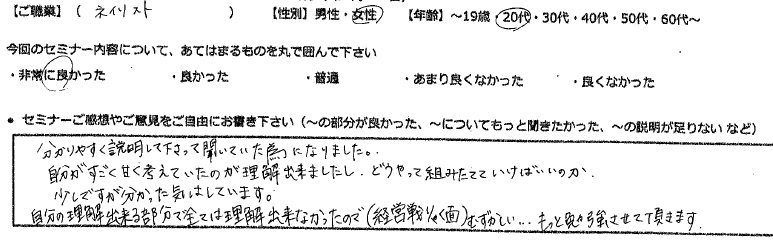 【ご職業】（ ネイリスト ） 【性別】男性・女性 【年齢】～19歳・20代・30代・40代・50代・60代～
今回のセミナー内容について、あてはまるものを丸で囲んで下さい
・非常に良かった ・良かった ・普通 ・あまり良くなかった ・良くなかった
* セミナーご感想やご意見をご自由にお書き下さい（～の部分が良かった、～についてもっと聞きたかった、～の説明が足りない など）
分かりやすく説明して下さって聞いていた為になりました。
自分がすごく甘く考えていたのが理解出来ましたし、どうやって組みたてていけばいいのか
少しですが分かった気はしています。
自分の理解出来る部分で全ては理解出来なかったので（経営戦りゃく面）むずかしい… もっと勉強させて頂きます